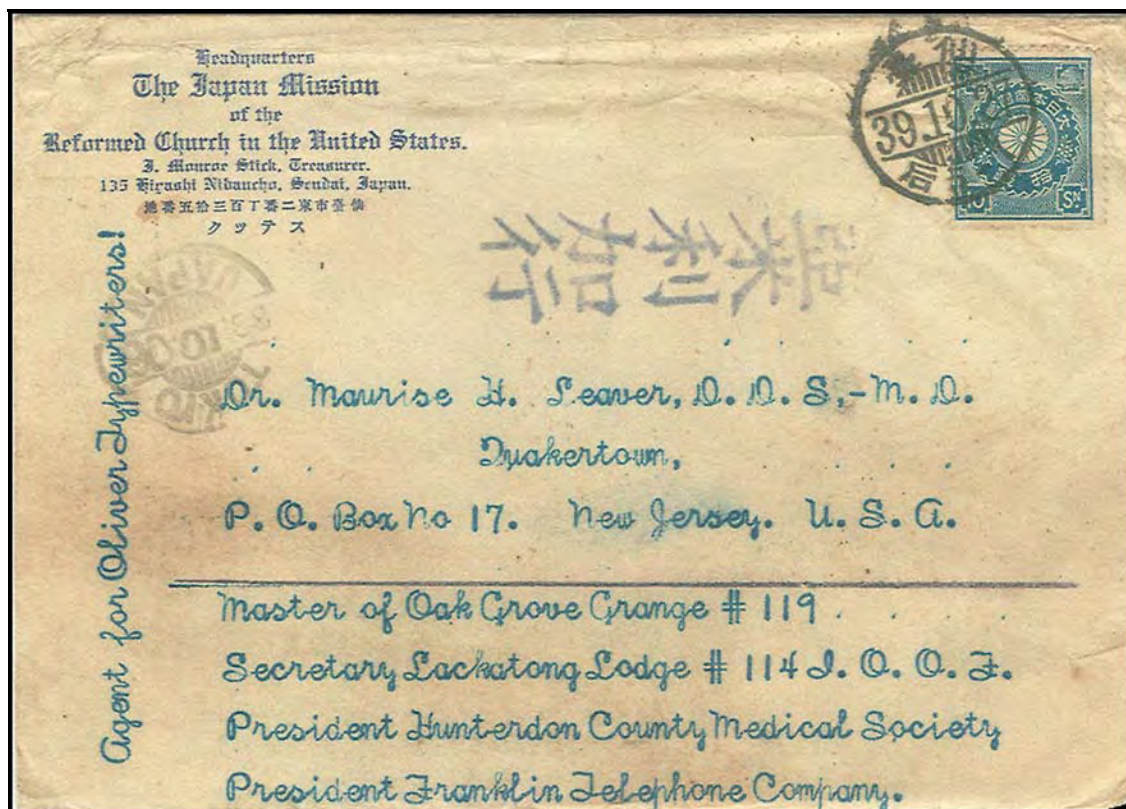 Headquarters
The Japan Mission
of the
Reformed Church in the United States.
J. Monroe Stick, Treasurer.
135 Higashi Nibancho, Sendai, Japan.
仙臺市東二番丁百三拾五番地
ステック
仙臺
39.10
后
大日本
10 Sn
亞米利加行
JAPAN
Agent for Oliver Typewriters!
Dr. Maurise H. Leaver, D. D. S,-M. D.
Quakertown,
P. O. Box No 17. New Jersey. U. S. A.
Master of Oak Grove Grange # 119
Secretary Lackatong Lodge # 114 I. O. O. F.
President Hunterdon County Medical Society
President Franklin Telephone Company.